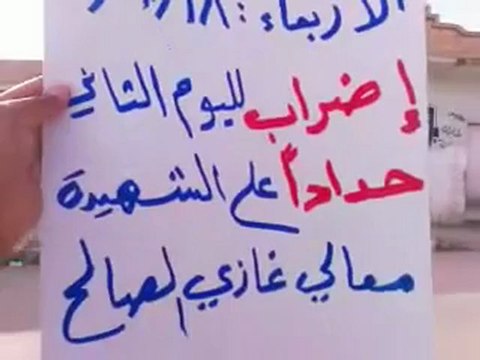 الأربعاء:
إضراب لليوم الثاني
حداداً على الشهيدة
معالي غازي الصالح